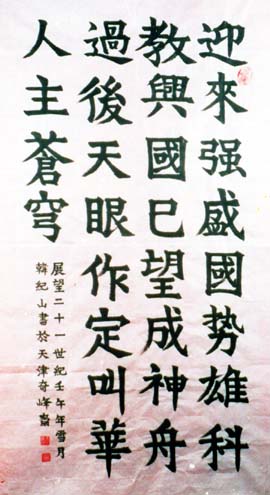 迎來强盛國势雄科
教興國已望成神舟
過後天眼作定叫華
人主蒼穹
展望二十一世纪壬午年雪月
韓纪山書於天津奇峰齋